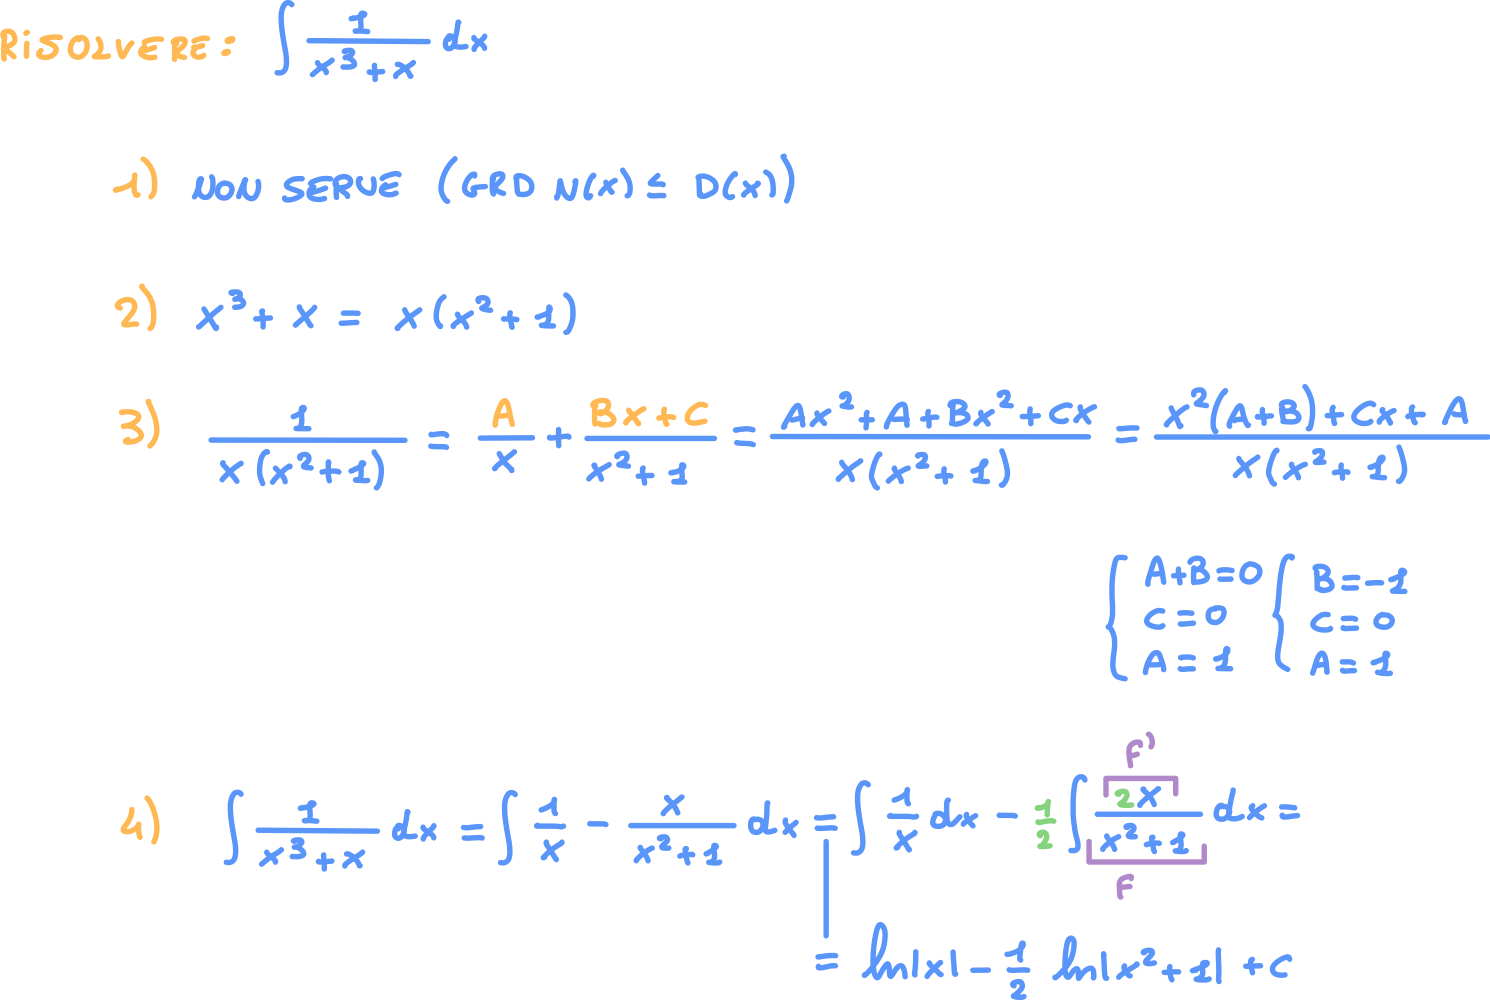 RiSOLVERE: ∫ 1/(x³+x) dx
1) NON SERVE (GRD N(x) ≤ D(x))
2) x³+x = x(x²+1)
3) 1/(x(x²+1)) = A/x + (Bx+C)/(x²+1) = (Ax²+A+Bx²+Cx)/(x(x²+1)) = (x²(A+B)+Cx+A)/(x(x²+1))
{ A+B=0 { B=-1
C=0 C=0
A=1 A=1
F'
4) ∫ 1/(x³+x) dx = ∫ 1/x - x/(x²+1) dx = ∫ 1/x dx - 1/2 ∫ 2x/(x²+1) dx =
F
= ln|x| - 1/2 ln|x²+1| + c